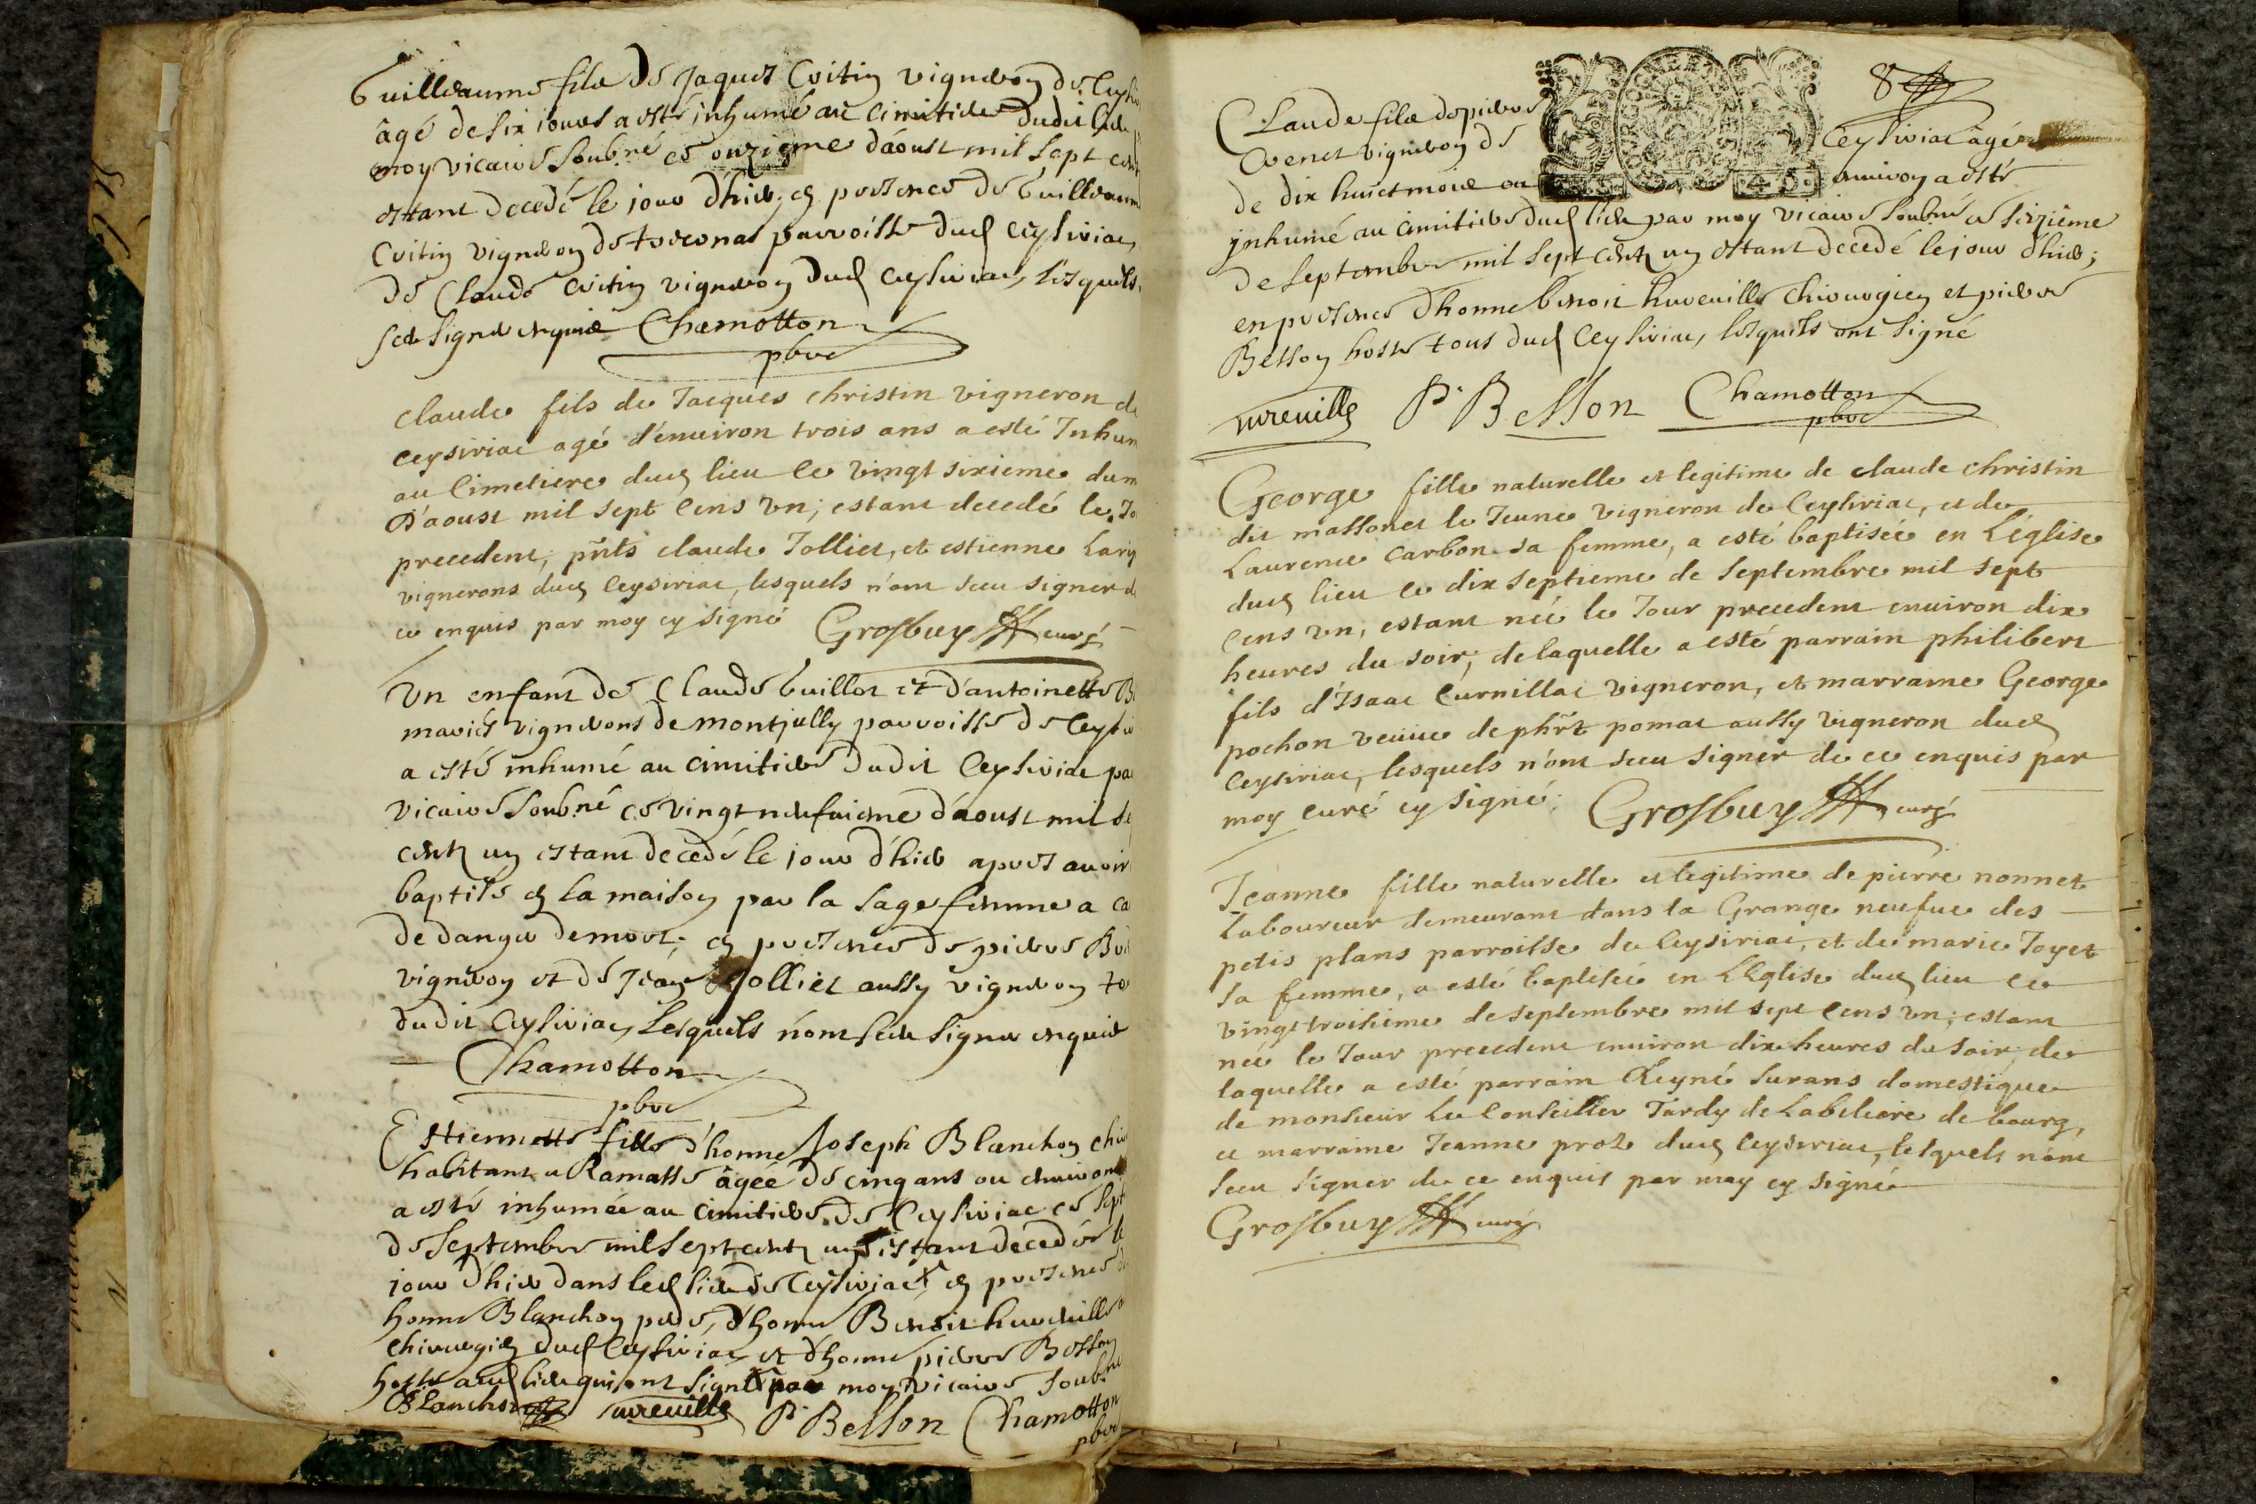 Guilleaume fils de Jaques Critin vigneron de Ceysi
âgé de six jours a esté inhumé au cimitiere dudit lieu
moy vicaire soubné ce onzieme d'aoust mil sept cent
estant decedé le jour d'hier, en presence de Guilleaum
Critin vigneron de parroisse dud Ceysiriac,
de Claude Critin vigneron dud Ceysiriac, lesquels
sceu signer enquis Chamotton
pbre
claude fils de Jacques christin vigneron de
ceysiriac agé d'enuiron trois ans a esté Inhum
au Cimetiere dud lieu ce vingt sixieme du m
D'aoust mil sept Cens vn; estant decedé le Jo
precedent; pnts claude Jolliet, et estienne
vignerons dud Ceysiriac, lesquels n'ont sceu signer d
ce enquis par moy cy signé Grosbuy curé
Vn enfant de Claude Guillot et d'antoinette B
mariés vignerons de montjully parroisse de Ceysi
a esté inhumé au cimitiere dudit Ceysiriac pa
vicaire soubné ce vingt neufuieme d'aoust mil se
cent un estant decedé le jour d'hier apres auoir
baptisé en la maison par la sage femme a ca
de danger de mort; en presence de pierre
vigneron et de Jean Jolliet aussy vigneron to
dudit Ceysiriac, Lesquels n'ont sceu signer enquis
Chamotton
pbre
Estiennette fille d'honne Joseph Blanchon chir
habitant a Ramasse âgée de cinq ans ou enuiron
a esté inhumée au cimitiere de Ceysiriac ce sept
de septembre mil sept cent un estant decedée le
jour d'hier dans led lieu de Ceysiriac en presence d
honne Blanchon pere, d'honne Benoit hureuille
chirurgien dud Ceysiriac et d'honne pierre Besson
hoste aud lieu qui ont signé par moy vicaire soubné
Blanchon ureuille P. Besson Chamotton
pbre
8
Claude fils de pierre
vigneron de Ceysiriac âgé
de dix huict mois ou enuiron a esté
jnhumé au cimitiere dud lieu par moy vicaire soubné ce seizieme
de septembre mil sept cent un estant decedé le jour d'hier;
en presence d'honne benoit hureuille chirurgien et pierre
Besson hoste tous dud Ceysiriac, lesquels ont signé
ureuille P. Besson Chamotton
pbre
George fille naturelle et legitime de claude christin
dit massonet le Jeune vigneron de Ceysiriac, et de
Laurence Carbon sa femme, a esté baptisée en L'église
dud lieu ce dix septieme de septembre mil sept
Cens vn; estant née le Jour precedent enuiron dix
heures du soir; de laquelle a esté parrain philibert
fils d'Isaac Curnillat vigneron, et marraine George
pochon veuue de phrt pomat aussy vigneron dud
Ceysiriac, lesquels n'ont sceu signer de ce enquis par
moy curé cy signé; Grosbuy curé
Jeanne fille naturelle et legitime de pierre nonnet
Laboureur demeurant dans la Grange neufue des
petis plans parroisse de Ceysiriac, et de marie Joyet
sa femme, a esté baptisée en L'Eglise dud lieu ce
vingt troisieme de septembre mil sept Cens vn; estant
née le Jour precedent enuiron dix heures du soir; de
laquelle a esté parrain Reyné surans domestique
de monsieur Le Conseiller Tardy de Labeliere de bourg,
et marraine Jeanne dud Ceysiriac, lesquels n'ont
sceu signer de ce enquis par moy cy signé
Grosbuy curé